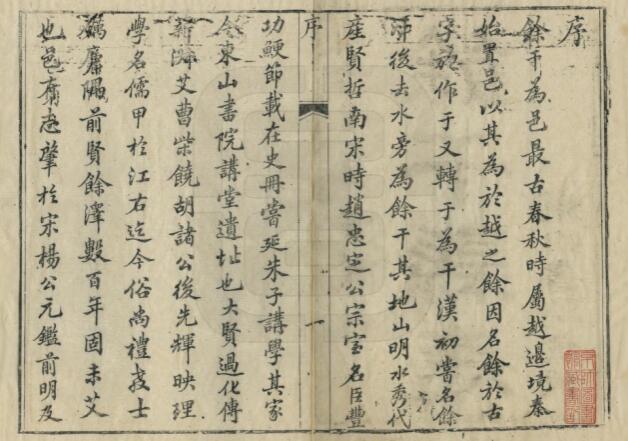 序
餘干為邑最古春秋時屬越邊境秦
始置邑以其為於越之餘因名餘於古
字於作于又轉于為干漢初嘗名餘
汗後去水旁為餘干其地山明水秀代
產賢哲南宋時趙忠定公宗室名臣豐
序
一
功鯁節載在史冊嘗延朱子講學其家
今東山書院講堂遺址也大賢過化傳
艾曹柴饒胡諸公後先輝映理
學名儒甲於江右迄今俗尚禮義士
廉隅前賢餘澤數百年固未艾
也邑有志肇於宋楊公元鑑前明及